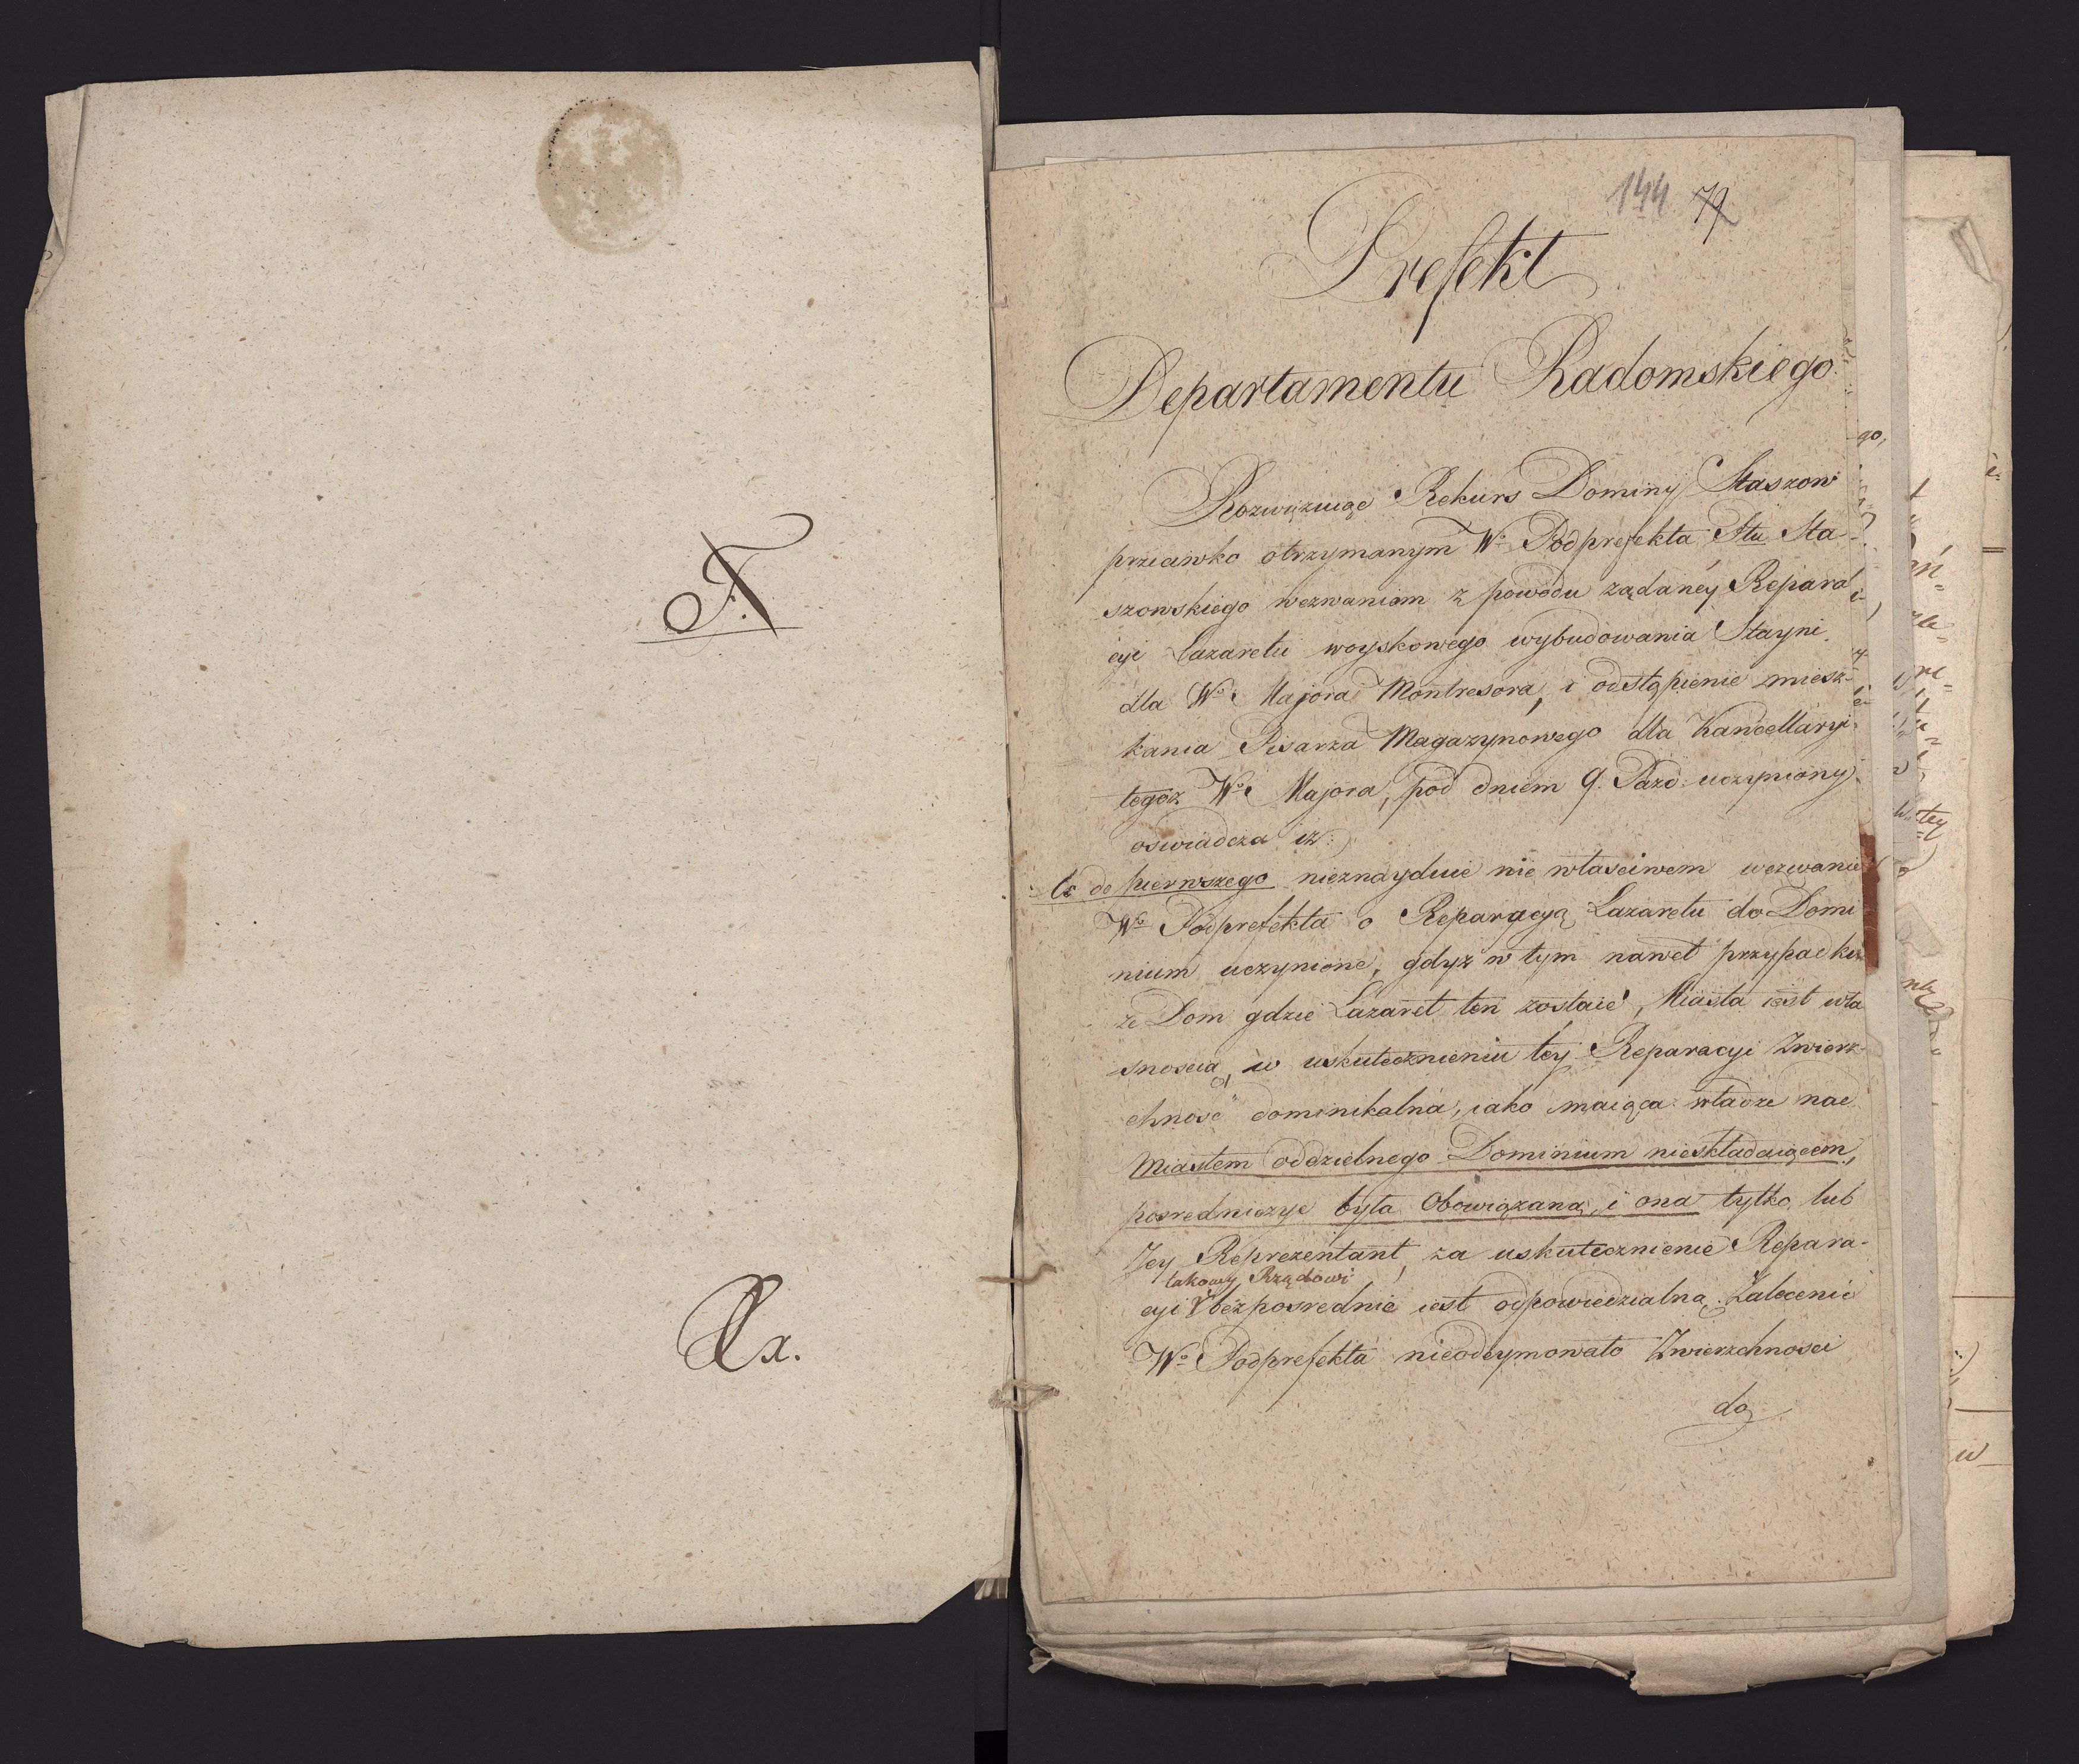 F.
Lx.
144 79
Prefekt
Departamentu Radomskiego
Rozwiązuiąc Rekurs Dominij Staszow
przeciwko otrzymanym Wo Podprefekta Ptu Sta-
szowskiego wezwaniom z powodu ządaney Repara
cyi Lazaretu woyskowego wybudowania Stayni
dla Wo Majora Montresora, i odstąpienie miesz-
kania Pisarza Magazynowego dla Kancellaryi
tegoz Wo Majora, pod dniem 9. Pazd: uczyniony
oswiadcza iz:
to do pierwszego nieznayduie nie własciwem wezwanie
Wo Podprefekta o Reparacyą Lazaretu do Domi
nium uczynione, gdyz w tym nawet przypadku
ze Dom gdzie Lazaret ten zostaie, Miasta iest wła
snoscią, w uskutecznieniu tey Reparacyi Zwierz-
chnosć dominikalna, iako maiąca władze nad
Miastem oddzielnego Dominium nieskładaiącem,
posredniczyc była Obowiązaną, i ona tylko lub
Jey Reprezentant, za uskutecznienie Repara-
takowy Rządowi
cyi bezposrednie iest odpowiedzialną. Zalecenie
Wo Podprefekta nieodeymowało Zwierzchnosci
do